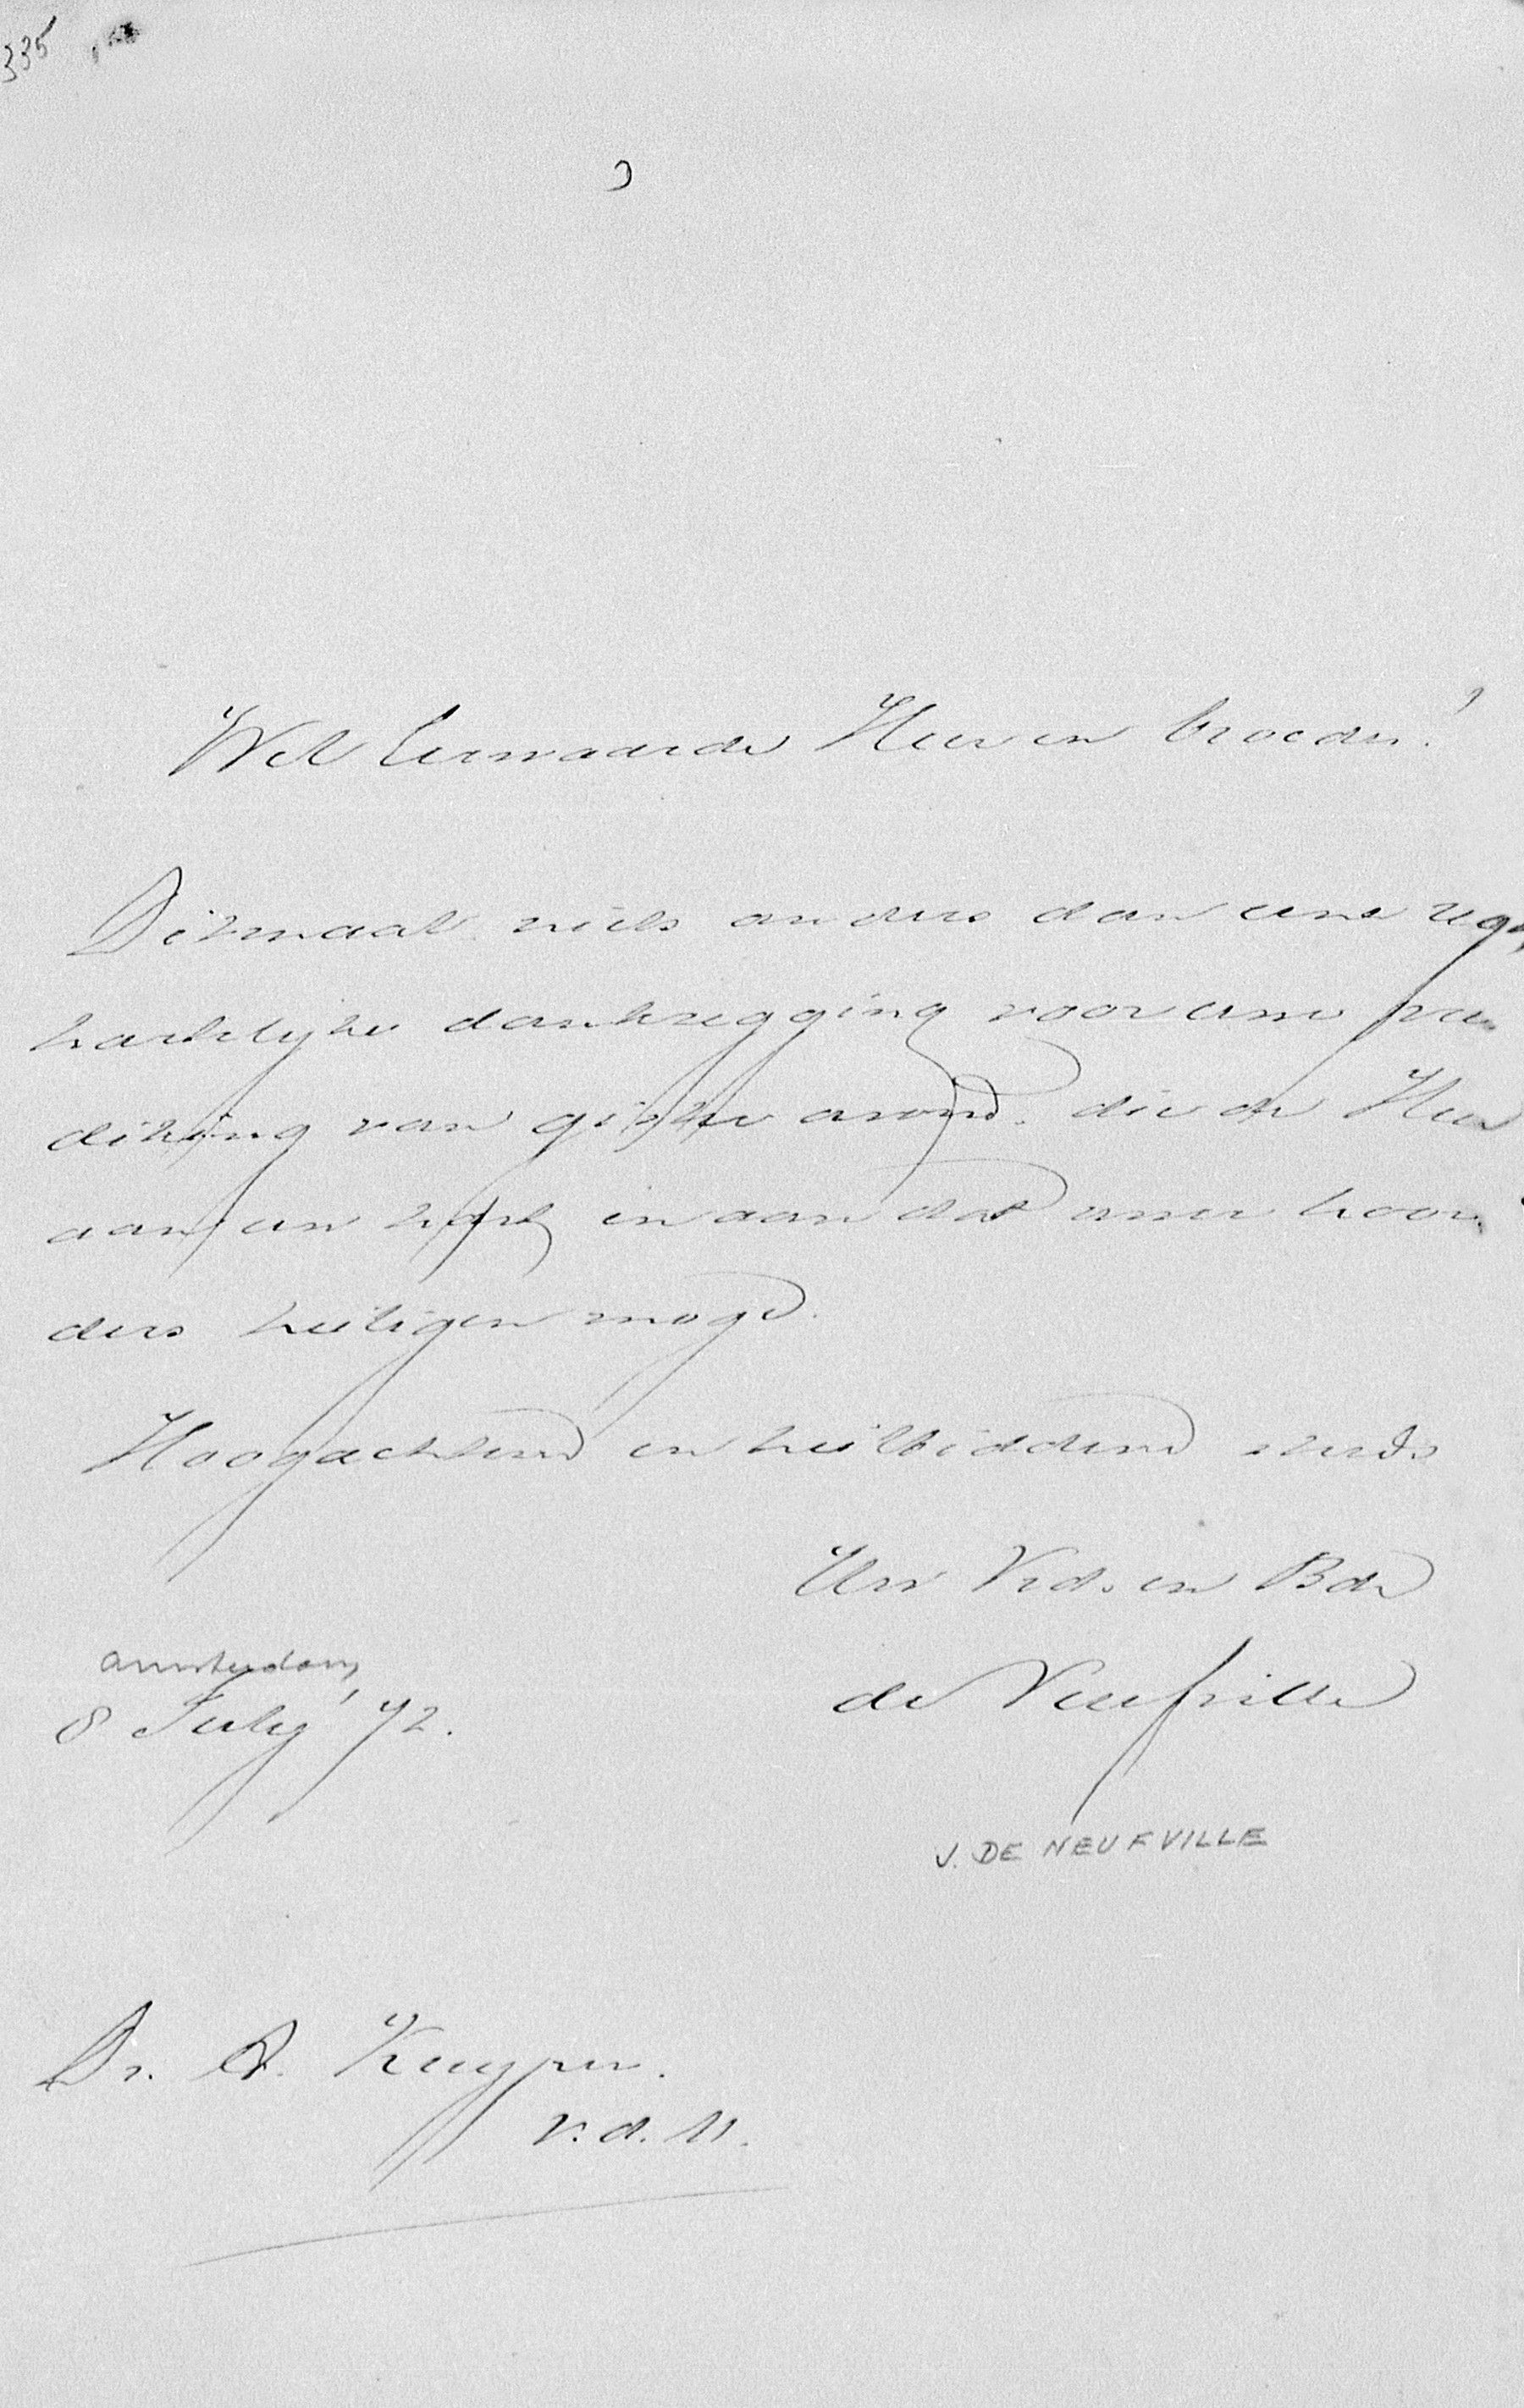 335
Wel Eerwaarde Heer en broeder!
Ditmaal niets anders dan eene regt
hartelijke dankzegging voor uwe pre¬
diking van gister avond. die de Heer
aan uw hart en aan dat uwer hoor¬
ders heiligen moge.
Hoogachtend en heilbiddend steeds
Uw Vrd. en Bdr
de Neufville
Amsterdam,
8 July '72.
J. DE NEUFVILLE
Dr. A. Kuyper.
v.d.M.